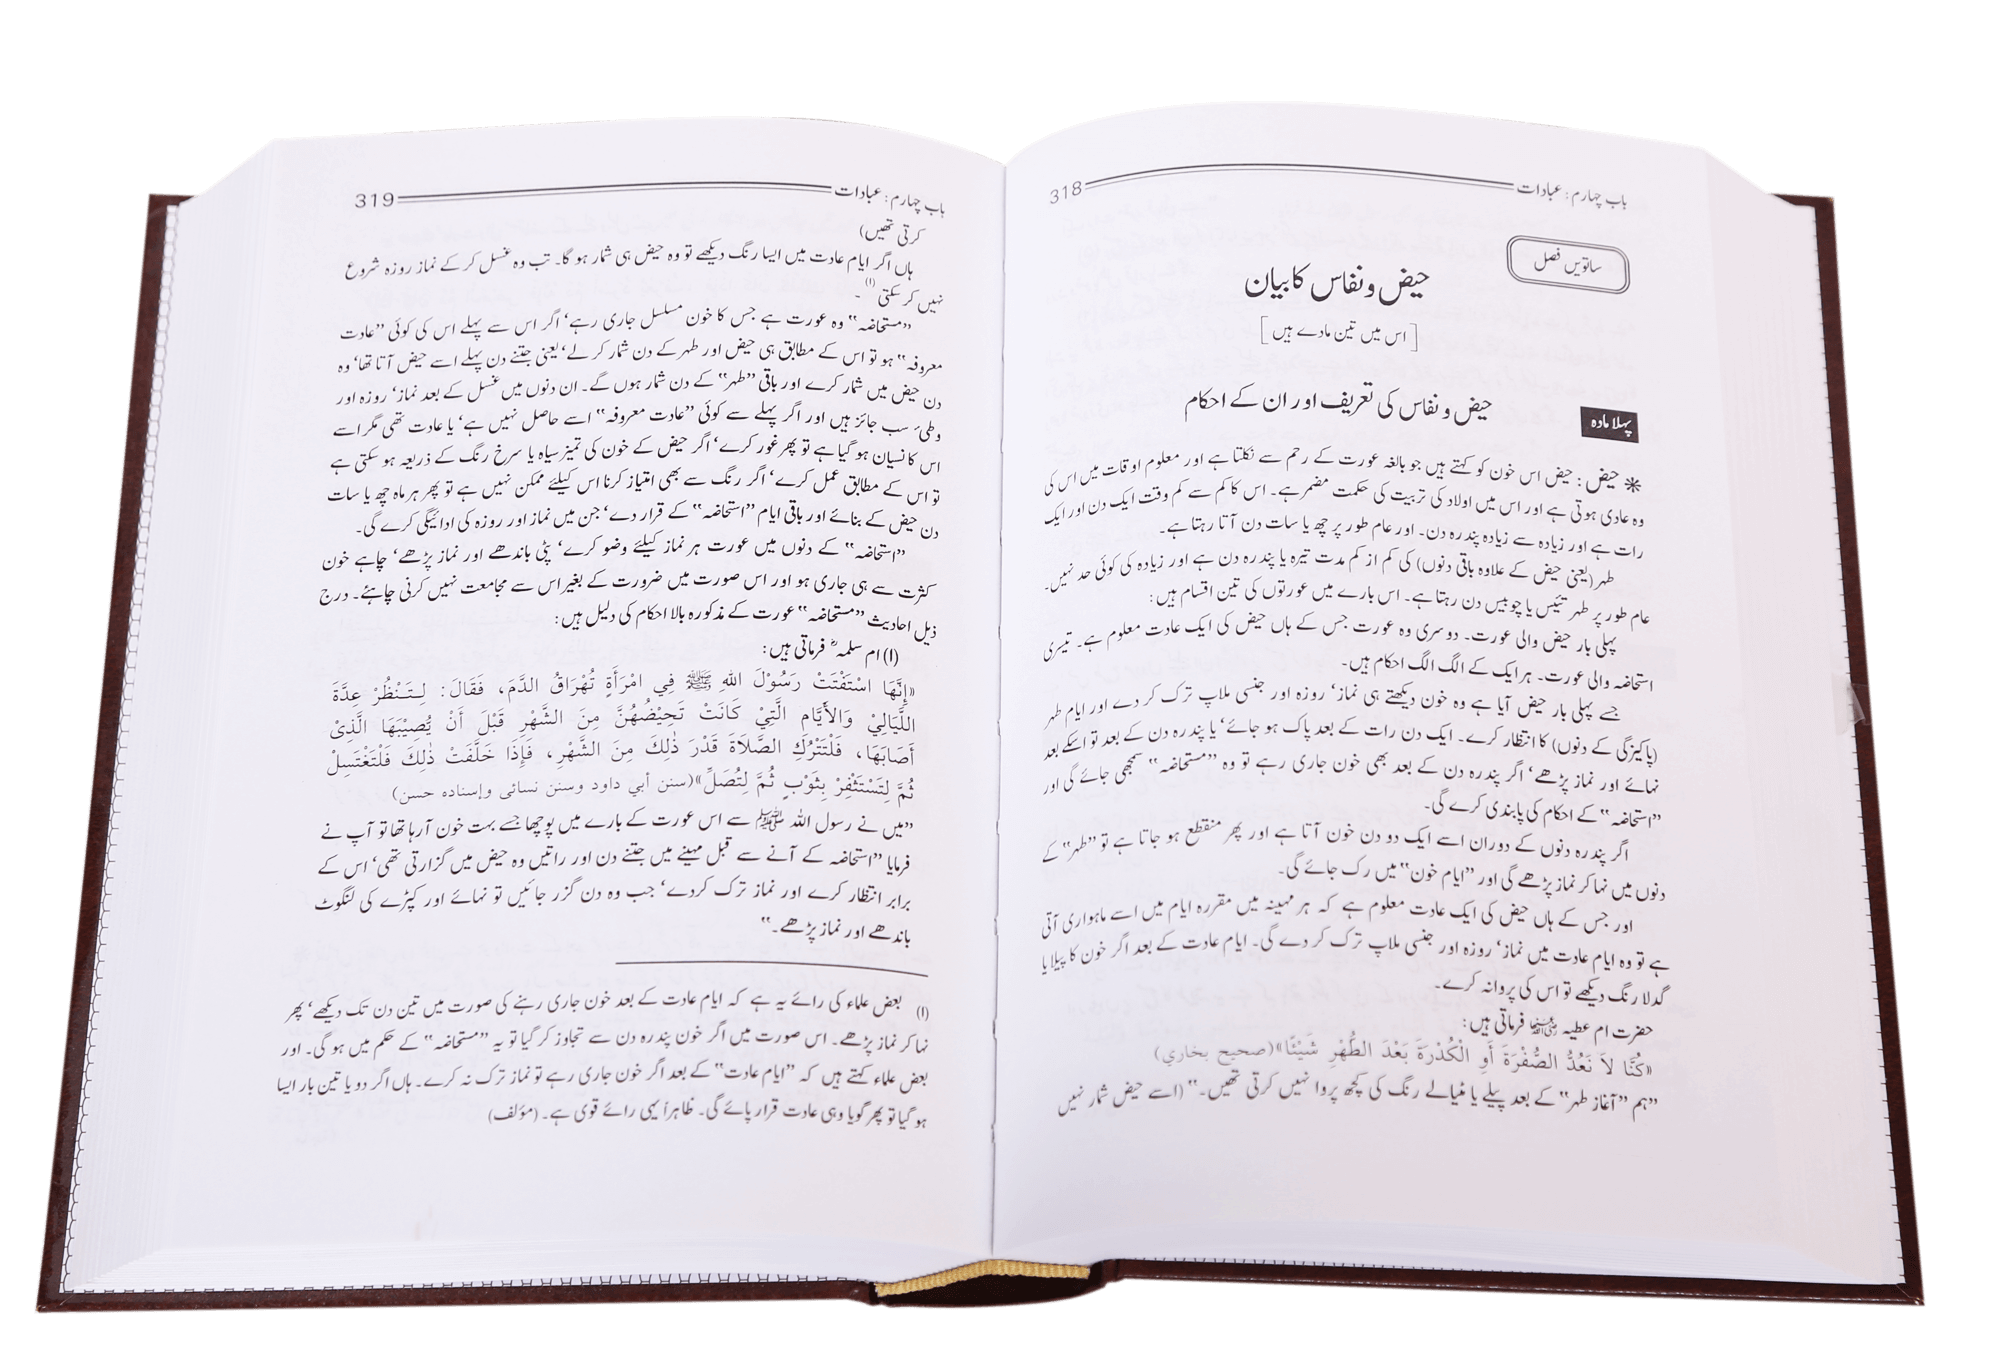 باب چہارم: عبادات 318
ساتویں فصل
حیض و نفاس کا بیان
[اس میں تین مادے ہیں]
پہلا مادہ
حیض و نفاس کی تعریف اور ان کے احکام
* حیض: حیض اس خون کو کہتے ہیں جو بالغہ عورت کے رحم سے نکلتا ہے اور معلوم اوقات میں اس کی
وہ عادی ہوتی ہے اور اس میں اولاد کی تربیت کی حکمت مضمر ہے۔ اس کا کم سے کم وقت ایک دن اور ایک
رات ہے اور زیادہ سے زیادہ پندرہ دن۔ اور عام طور پر چھ یا سات دن آتا رہتا ہے۔
طہر (یعنی حیض کے علاوہ باقی دنوں) کی کم از کم مدت تیرہ یا پندرہ دن ہے اور زیادہ کی کوئی حد نہیں۔
عام طور پر طہر تئیس یا چوبیس دن رہتا ہے۔ اس بارے میں عورتوں کی تین اقسام ہیں:
پہلی بار حیض والی عورت۔ دوسری وہ عورت جس کے ہاں حیض کی ایک عادت معلوم ہے۔ تیسری
استحاضہ والی عورت۔ ہر ایک کے الگ الگ احکام ہیں۔
جسے پہلی بار حیض آیا ہے وہ خون دیکھتے ہی نماز‘ روزہ اور جنسی ملاپ ترک کر دے اور ایام طہر
(پاکیزگی کے دنوں) کا انتظار کرے۔ ایک دن رات کے بعد پاک ہو جائے‘ یا پندرہ دن کے بعد تو اسکے بعد
نہائے اور نماز پڑھے‘ اگر پندرہ دن کے بعد بھی خون جاری رہے تو وہ ”مستحاضہ“ سمجھی جائے گی اور
”استحاضہ“ کے احکام کی پابندی کرے گی۔
اگر پندرہ دنوں کے دوران اسے ایک دو دن خون آتا ہے اور پھر منقطع ہو جاتا ہے تو ”طہر“ کے
دنوں میں نہا کر نماز پڑھے گی اور ”ایام خون“ میں رک جائے گی۔
اور جس کے ہاں حیض کی ایک عادت معلوم ہے کہ ہر مہینہ میں مقررہ ایام میں اسے ماہواری آتی
ہے تو وہ ایام عادت میں نماز‘ روزہ اور جنسی ملاپ ترک کر دے گی۔ ایام عادت کے بعد اگر خون کا پیلا یا
گدلا رنگ دیکھے تو اس کی پروا نہ کرے۔
حضرت ام عطیہ رضی اللہ عنہا فرماتی ہیں:
«كُنَّا لاَ نَعُدُّ الصُّفْرَةَ أَوِ الْكُدْرَةَ بَعْدَ الطُّهْرِ شَيْئًا» (صحيح بخاري)
”ہم ”آغاز طہر“ کے بعد پیلے یا مٹیالے رنگ کی کچھ پروا نہیں کرتی تھیں۔“ (اسے حیض شمار نہیں
باب چہارم: عبادات 319
کرتی تھیں)
ہاں اگر ایام عادت میں ایسا رنگ دیکھے تو وہ حیض ہی شمار ہو گا۔ تب وہ غسل کر کے نماز روزہ شروع
نہیں کر سکتی (۱)۔
”مستحاضہ“ وہ عورت ہے جس کا خون مسلسل جاری رہے‘ اگر اس سے پہلے اس کی کوئی ”عادت
معروفہ“ ہو تو اس کے مطابق ہی حیض اور طہر کے دن شمار کر لے‘ یعنی جتنے دن پہلے اسے حیض آتا تھا‘ وہ
دن حیض میں شمار کرے اور باقی ”طہر“ کے دن شمار ہوں گے۔ ان دنوں میں غسل کے بعد نماز‘ روزہ اور
وطیٔ سب جائز ہیں اور اگر پہلے سے کوئی ”عادت معروفہ“ اسے حاصل نہیں ہے‘ یا عادت تھی مگر اسے
اس کا نسیان ہو گیا ہے تو پھر غور کرے‘ اگر حیض کے خون کی تمیز سیاہ یا سرخ رنگ کے ذریعہ ہو سکتی ہے
تو اس کے مطابق عمل کرے‘ اگر رنگ سے بھی امتیاز کرنا اس کیلئے ممکن نہیں ہے تو پھر ہر ماہ چھ یا سات
دن حیض کے بنائے اور باقی ایام ”استحاضہ“ کے قرار دے‘ جن میں نماز اور روزہ کی ادائیگی کرے گی۔
”استحاضہ“ کے دنوں میں عورت ہر نماز کیلئے وضو کرے‘ پٹی باندھے اور نماز پڑھے‘ چاہے خون
کثرت سے ہی جاری ہو اور اس صورت میں ضرورت کے بغیر اس سے مجامعت نہیں کرنی چاہئے۔ درج
ذیل احادیث ”مستحاضہ“ عورت کے مذکورہ بالا احکام کی دلیل ہیں:
(۱) ام سلمہؓ فرماتی ہیں:
«إِنَّهَا اسْتَفْتَتْ رَسُوْلَ اللهِ ﷺ فِي امْرَأَةٍ تُهْرَاقُ الدَّمَ، فَقَالَ: لِتَنْظُرْ عِدَّةَ
اللَّيَالِيْ وَالأَيَّامِ الَّتِيْ كَانَتْ تَحِيْضُهُنَّ مِنَ الشَّهْرِ قَبْلَ أَنْ يُصِيْبَهَا الَّذِيْ
أَصَابَهَا، فَلْتَتْرُكِ الصَّلاَةَ قَدْرَ ذٰلِكَ مِنَ الشَّهْرِ، فَإِذَا خَلَّفَتْ ذٰلِكَ فَلْتَغْتَسِلْ
ثُمَّ لِتَسْتَثْفِرْ بِثَوْبٍ ثُمَّ لِتُصَلِّ» (سنن أبي داود وسنن نسائی وإسناده حسن)
”میں نے رسول اللہ ﷺ سے اس عورت کے بارے میں پوچھا جسے بہت خون آرہا تھا تو آپ نے
فرمایا ”استحاضہ کے آنے سے قبل مہینے میں جتنے دن اور راتیں وہ حیض میں گزارتی تھی‘ اس کے
برابر انتظار کرے اور نماز ترک کردے‘ جب وہ دن گزر جائیں تو نہائے اور کپڑے کی لنگوٹ
باندھے اور نماز پڑھے۔“
(۱) بعض علماء کی رائے یہ ہے کہ ایام عادت کے بعد خون جاری رہنے کی صورت میں تین دن تک دیکھے‘ پھر
نہا کر نماز پڑھے۔ اس صورت میں اگر خون پندرہ دن سے تجاوز کر گیا تو یہ ”مستحاضہ“ کے حکم میں ہو گی۔ اور
بعض علماء کہتے ہیں کہ ”ایام عادت“ کے بعد اگر خون جاری رہے تو نماز ترک نہ کرے۔ ہاں اگر دو یا تین بار ایسا
ہو گیا تو پھر گویا وہی عادت قرار پائے گی۔ ظاہراً یہی رائے قوی ہے۔ (مؤلف)